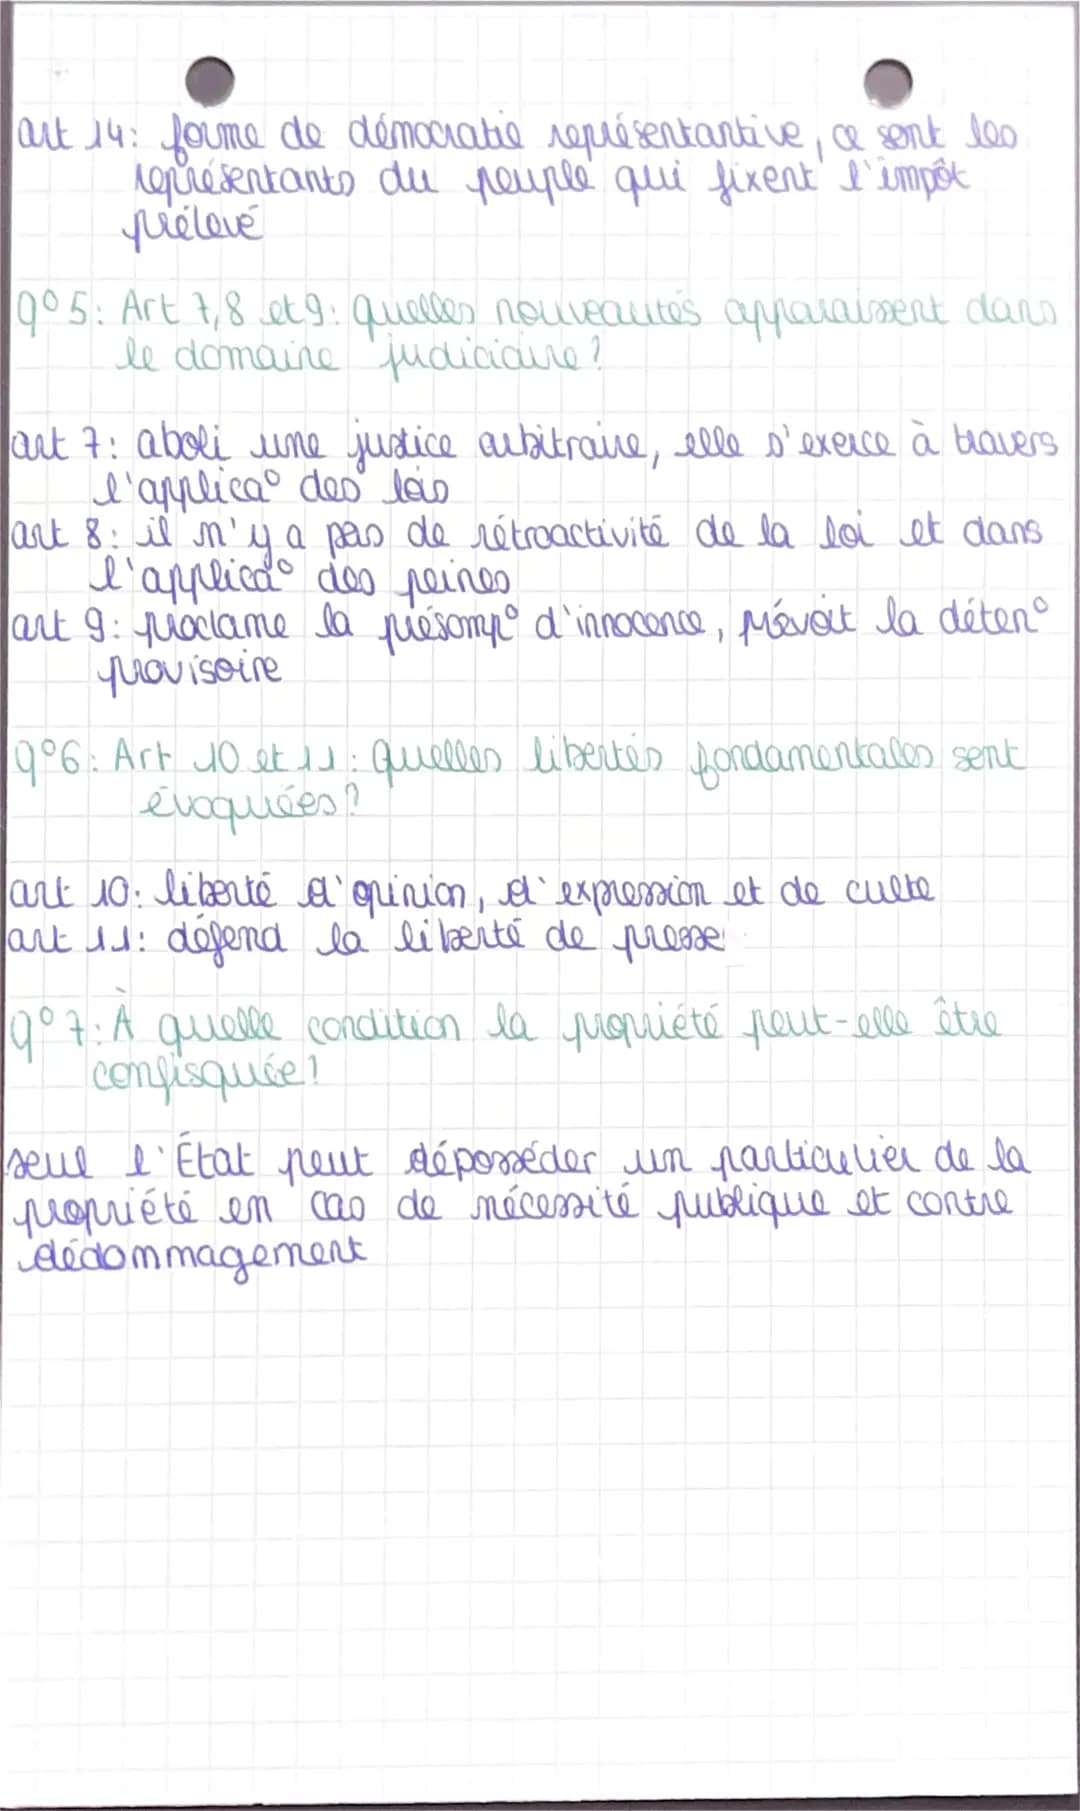 art 14: forme de démocratie représentantive, ce sont les
représentants du peuple qui fixent l'impôt
prélevé
q°5: Art 7, 8 et 9: quelles nouveautés apparaissent dans
le domaine judiciaire?
art 7: aboli une justice arbitraire, elle s'exerce à travers
l'applica° des lois
art 8: il n'y a pas de rétroactivité de la loi et dans
l'applica° des peines
art 9: proclame la présomp° d'innocence, prévoit la déten°
provisoire
q°6: Art 10 et 11: quelles libertés fondamentales sont
évoquées?
art 10: liberté d'opinion, d'expression et de culte
art 11: défend la liberté de presse
q°7: À quelle condition la propriété peut-elle être
confisquée?
seul l'État peut déposséder un particulier de la
propriété en cas de nécessité publique et contre
dédommagement